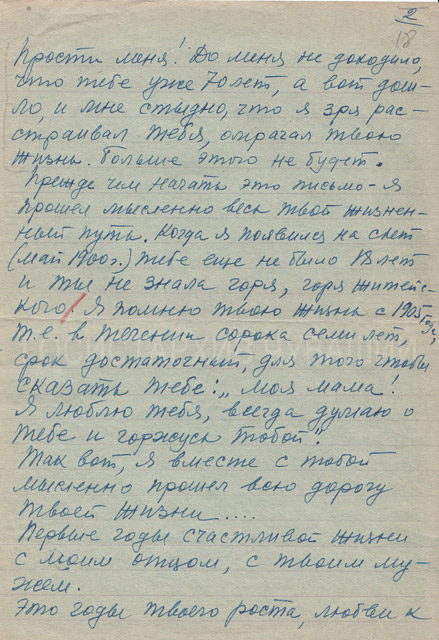 2
18
Прости меня! До меня не доходило,
что тебе уже 70 лет, а вот дош-
ло, и мне стыдно, что я зря рас-
страивал тебя, омрачал твою
жизнь. Больше этого не будет.
Прежде чем начать это письмо - я
прошел мысленно весь твой жизнен-
ный путь. Когда я появился на свет
(май 1900г.) тебе еще не было 18 лет
и ты не знала горя, горя житейс-
кого. Я помню твою жизнь с 1905 года,
т.е. в течении сорока семи лет,
срок достаточный, для того чтобы
сказать тебе: „моя мама!
Я люблю тебя, всегда думаю о
тебе и горжусь тобой".
Так вот, я вместе с тобой
мысленно прошел всю дорогу
твоей жизни....
Первые годы счастливой жизни
с моим отцом, с твоим му-
жем.
Это годы твоего роста, любви к